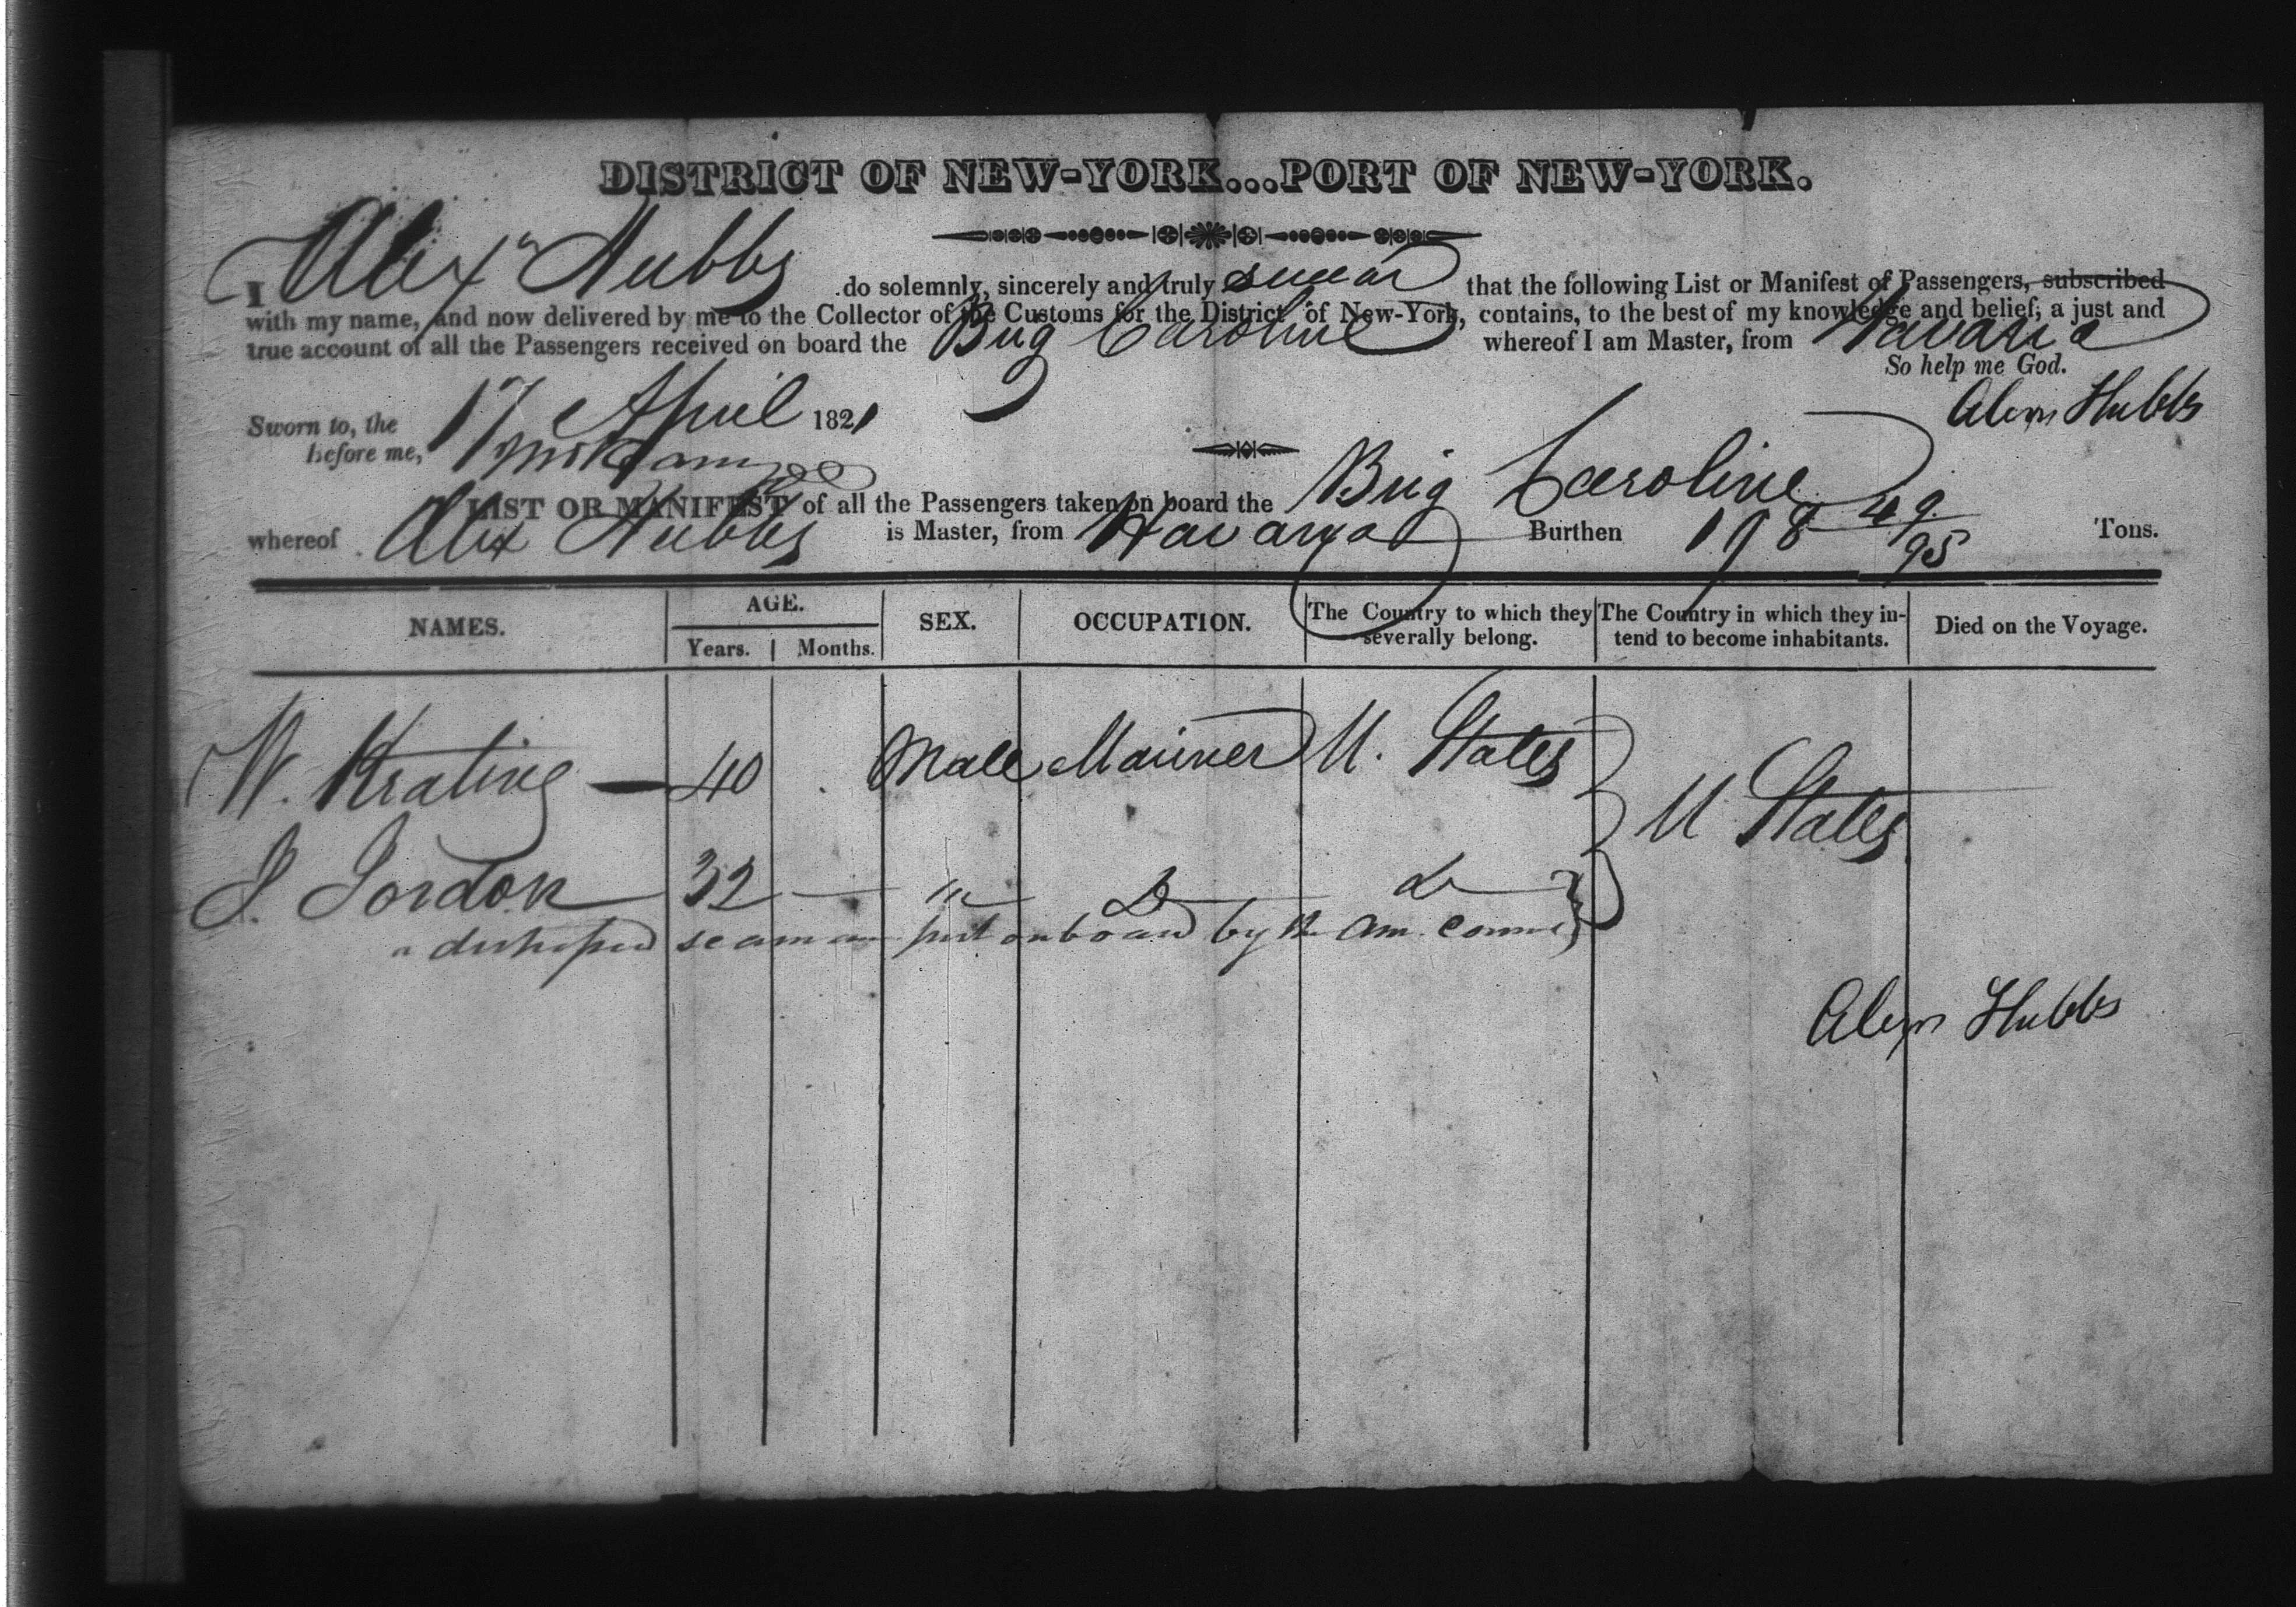 DISTRICT OF NEW-YORK...PORT OF NEW-YORK.
I Alexr Hubbs do solemnly, sincerely and truly swear that the following List or Manifest of Passengers, subscribed
with my name, and now delivered by me to the Collector of the Customs for the District of New-York, contains, to the best of my knowledge and belief, a just and
true account of all the Passengers received on board the Brig Caroline whereof I am Master, from Havana
So help me God.
Sworn to, the 17 April 1821
Alexr Hubbs
before me,
LIST OR MANIFEST of all the Passengers taken on board the Brig Caroline
whereof Alex Hubbs is Master, from Havana Burthen 198 49/95 Tons.
NAMES. AGE. SEX. OCCUPATION. The Country to which they severally belong. The Country in which they intend to become inhabitants. Died on the Voyage.
Years. Months.
W. Keating — 40 Male Mariner U. States
U States
J. Jordon 32 — " Do Do
a distressed seaman put on board by the Am.
Alexr Hubbs